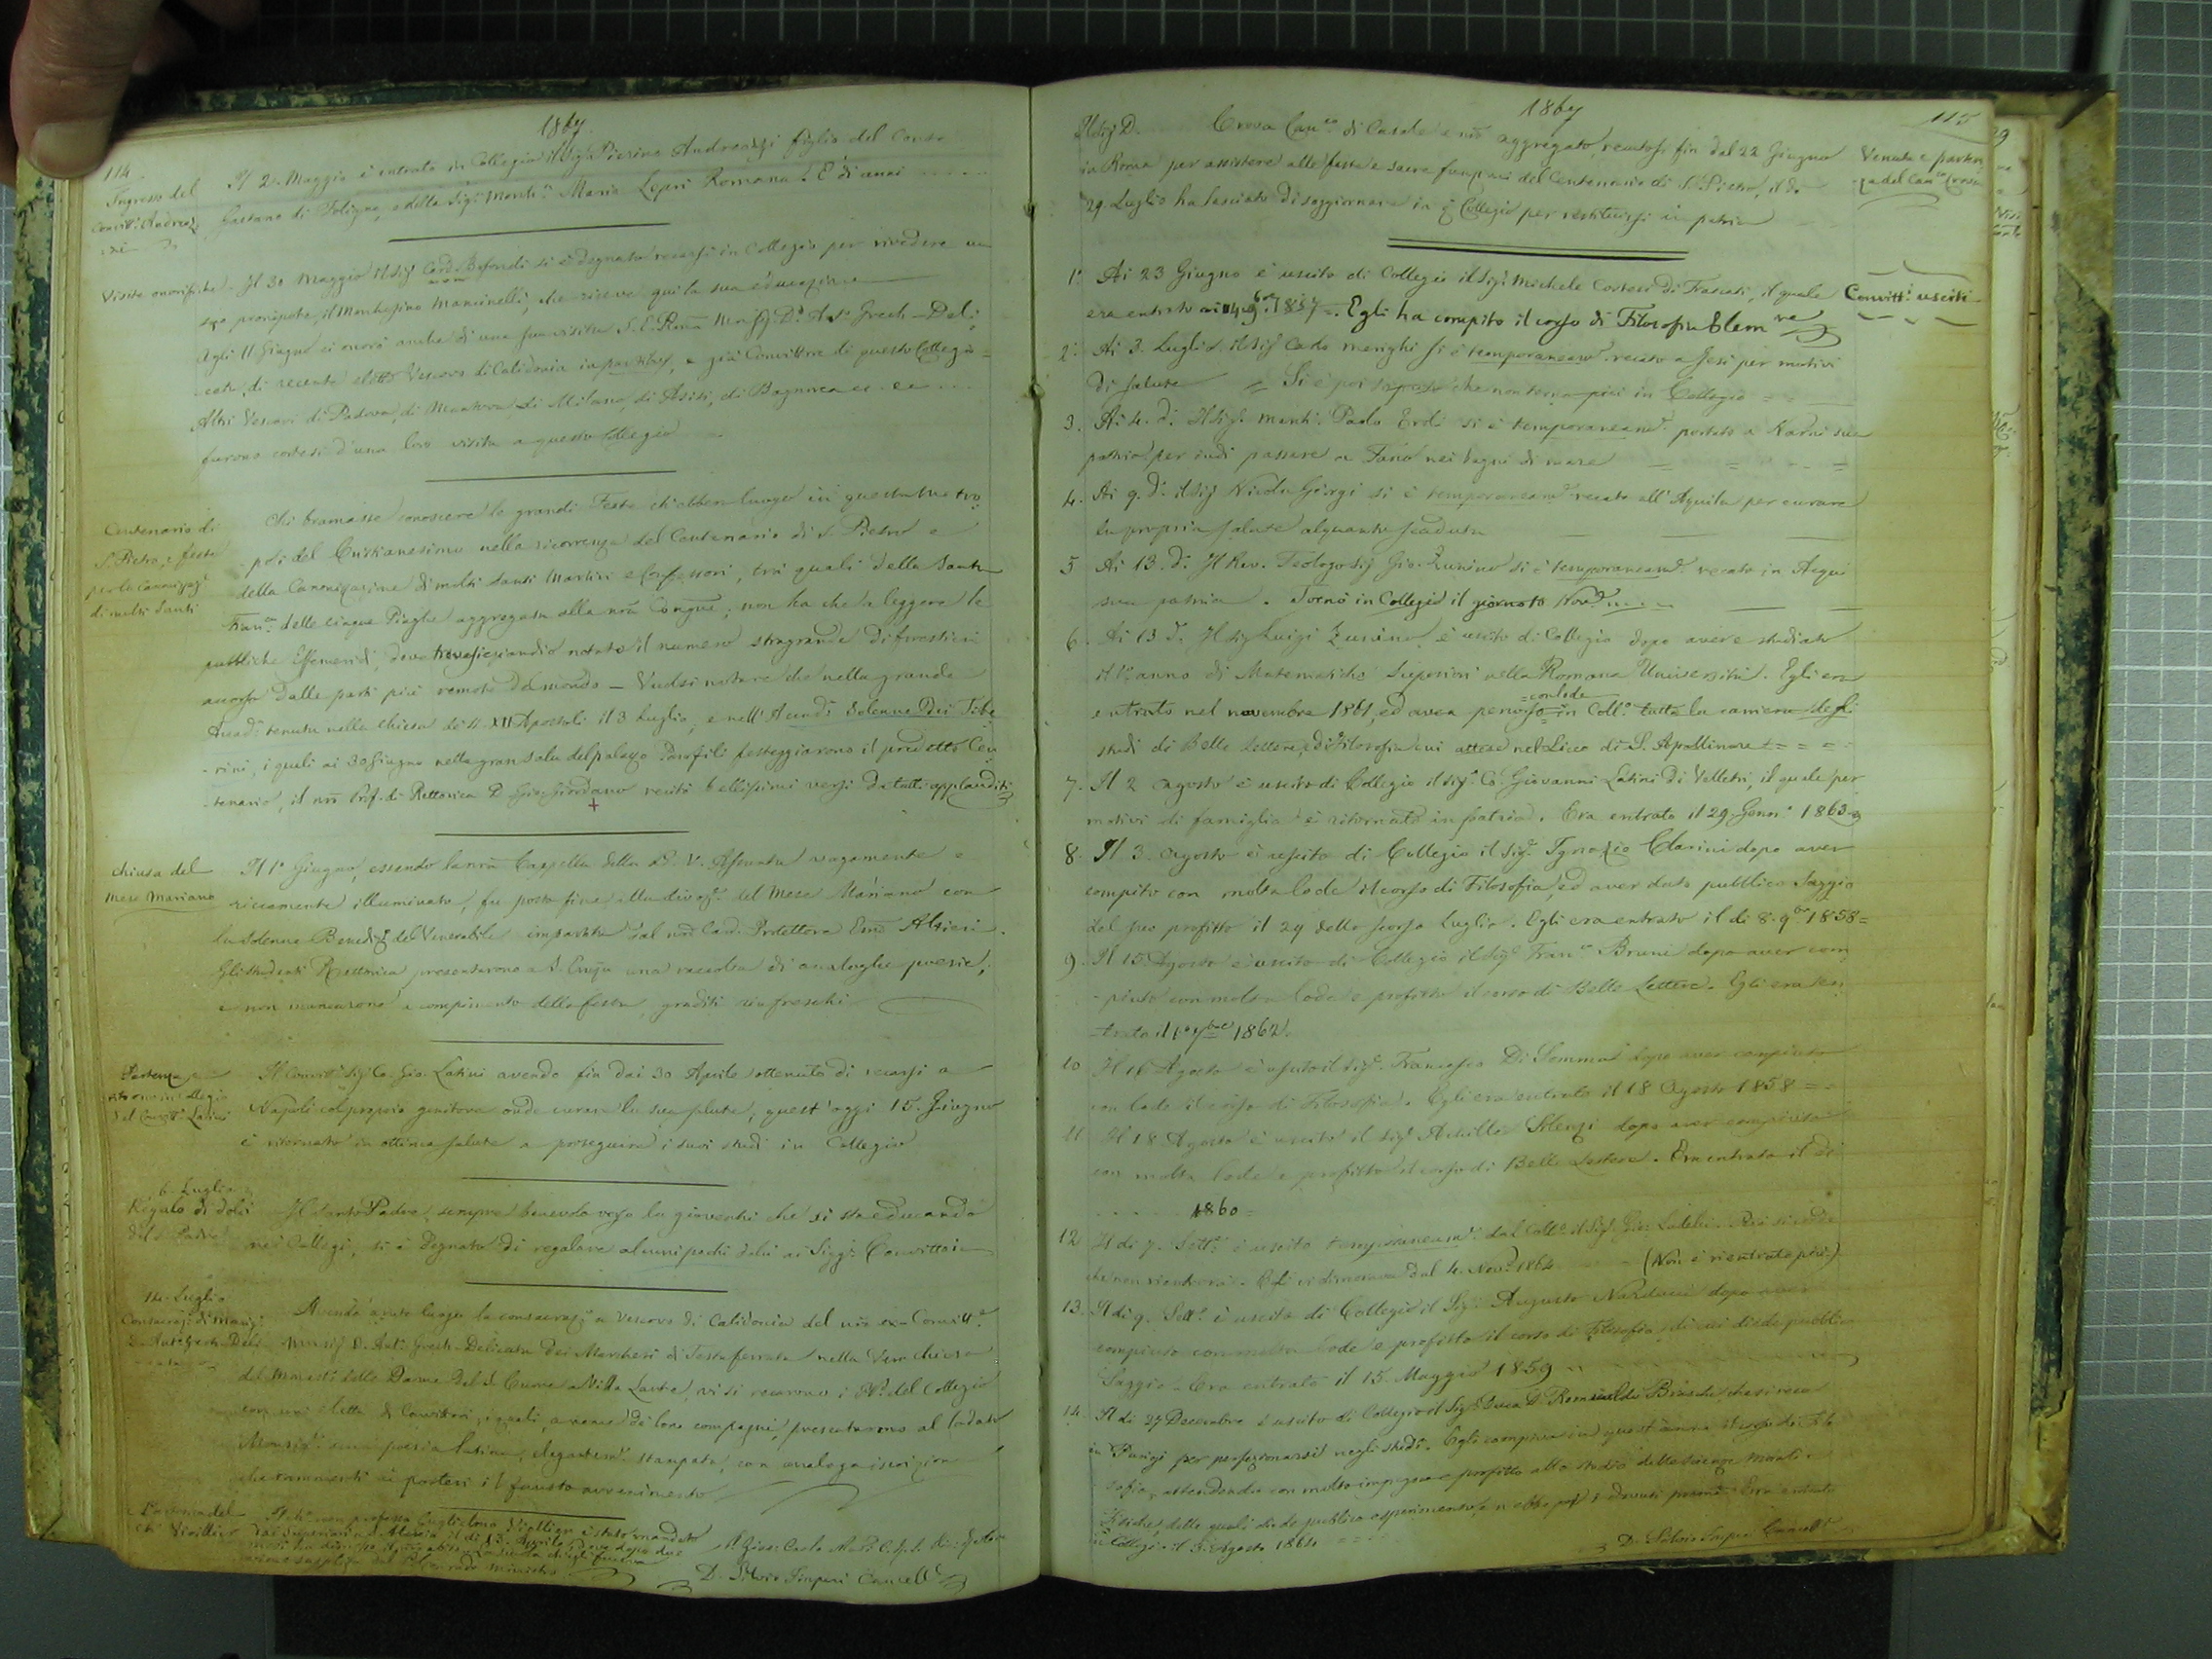 114.
1867.
Ingresso del
Convitt. Andreoz
zi
Il 2. Maggio è entrato in Collegio il Sig. Pierino Andreozzi figlio del Conte
Gaetano di Foligno, e della Sig.ra March.a Maria Lepri Romana. È di anni .....
Visite onorifiche
Il 30 Maggio il Sig. Card. Bofondi si è degnato recarsi in Collegio per rivedere un
suo pronipote, il Marchesino Mancinelli, che riceve qui la sua educazione
Agli 11 Giugno ci onorò anche di una sua visita S. E. Rma Monsig. D. Ant. Grech-Deli
cata, di recente eletto Vescovo di Calidonia in partibus, e già Convittore di questo Collegio
Altri Vescovi di Padova, di Mantova di Milano, di Assisi, di Bagnorea ec. ec. ...
furono cortesi d'una loro visita a questo Collegio
Centenario di
S. Pietro, e feste
per la Canonizaz.
di molti Santi
Chi bramasse conoscere le grandi Feste ch'ebber luogo in questa Metro
poli del Cristianesimo nella ricorrenza del Centenario di S. Pietro e
della Canonizazione di molti Santi Martiri e Confessori, tra quali della Santa
Fran.ca delle cinque Piaghe aggregata alla nra Congne, non ha che a leggere le
pubbliche Effemeridi dove troverà eziandio notato il numero stragrande di forestieri
accorsi dalle parti più remote del mondo — Vuolsi notare che nella grande
Accad. tenuta nella Chiesa de' SS. XII Apostoli il 3 Luglio, e nell'Accad. Solenne dei Tibe
rini, i quali ai 30 Giugno nella gran sala del palazzo Pamfili festeggiarono il predetto Cen
tenario, il nro Prof. di Rettorica D. Gio. Giordano recitò bellissimi versi da tutti applauditi
+
Chiusa del
Mese Mariano
Il 1° Giugno, essendo la nra Cappella della B. V. Assunta vagamente e
riccamente illuminata, fu posto fine alla divoz.e del Mese Mariano con
la solenne Benediz. del Venerabile impartita dal nro Card. Protettore Emo Altieri.
Gli studenti Rettorica presentarono a S. Emza una raccolta di analoghe poesie;
e non mancarono a compimento della festa, graditi rinfreschi
Partenza e
ritorno in Collegio
del Convitt. Latini
Il Convitt. Sig. Co. Gio. Latini avendo fin dai 30 Aprile ottenuto di recarsi a
Napoli col proprio genitore onde curare la sua salute, quest'oggi 15. Giugno
è ritornato in ottima salute a proseguire i suoi studi in Collegio
6. Luglio
Regalo di dolci
del S. Padre
Il Santo Padre, sempre benevolo verso la gioventù che si sta educando
nei Collegi, si è degnato di regalare alcuni pochi dolci ai Sigg. Convittori
14. Luglio
Consacraz. di Monsig.
D. Ant. Grech-Deli
cata
Avendo avuto luogo la consacraz.e a Vescovo di Calidonia del nro ex-Convitt.e
Monsig. D. Ant. Grech-Delicata dei Marchesi di Testaferrata nella Ven. chiesa
del Monast. delle Dame del S. Cuore a Villa Lante, vi si recarono i PP. del Collegio
con una eletta di Convittori, i quali, a nome de' loro compagni, presentarono al lodato
Monsig.e una poesia latina, elegantem.e stampata, con analoga iscrizione
che rammenti ai posteri il fausto avvenimento
Partenza del
Ch. Vioillier
D. Silvio Imperi Cancell.e
115
1867
Il Sig. D. Crova Can.co di Casale e nro aggregato, recatosi fin dal 22 Giugno
in Roma per assistere alle feste e sacre funzioni del Centenario di S. Pietro, il dì
29. Luglio ha lasciato di soggiornare in q. Collegio per restituirsi in patria
Venuta e parten
za del Can.co Crova
Convitt.i usciti
1° Ai 23 Giugno è uscito di Collegio il Sig. Michele Cortesi di Frascati, il quale
era entrato ai 14 9bre 1857. Egli ha compito il corso di Filosofia Elem.re
2. Ai 3. Luglio, il Sig. Carlo Merighi si è temporaneam.e recato a Jesi per motivi
di salute = Si è poi saputo che non torna più in Collegio = =
3. Ai 4. d. Il Sig. March. Paolo Eroli si è temporaneam.e portato a Narni sua
patria per indi passare a Fano nei bagni di mare
4. Ai 9. d. il Sig. Nicola Giorgi si è temporaneam.e recato all'Aquila per curare
la propria salute alquanto scaduta
5 Ai 13. d. Il Rev. Teologo Sig. Gio. Zunino si è temporaneam.e recato in Acqui
sua patria. Tornò in Collegio il giorno 10 Nov.e .....
6. Ai 13 d. Il Sig. Luigi Zunino, è uscito di Collegio dopo avere studiato
il 1° anno di Matematiche Superiori nella Romana Università. Egli era
entrato nel novembre 1861, ed avea percorso =con lode= in Coll.o tutta la carriera degli
studi di Belle Lettere, e di Filosofia cui attese nel Liceo di S. Apollinare = = =
7. Il 2 Agosto è uscito di Collegio il Sig. Co. Giovanni Latini di Velletri, il quale per
motivi di famiglia è ritornato in patria. Era entrato il 29. Genn.o 1863
8. Il 3. Agosto è uscito di Collegio il Sig. Ignazio Clarini dopo aver
compito con molta lode il corso di Filosofia, ed aver dato pubblico Saggio
del suo profitto il 29 dello scorso Luglio. Egli era entrato il dì 8. 9bre 1858=
9. Il 15. Agosto è uscito di Collegio il Sig. Fran.co Bruni dopo aver com
piuto con molta lode e profitto il corso di Belle Lettere. Egli era en
trato il 1° 9bre 1862.
10 Il 16 Agosto è uscito il Sig. Francesco Di Somma dopo aver compiuto
con lode il corso di Filosofia. Egli era entrato il 18 Agosto 1858 = =
11 Il 18 Agosto è uscito il Sig. Achille Stenzi dopo aver compiuto
con molta lode e profitto il corso di Belle Lettere. Era entrato il dì
..... 1860=
12 Il dì 7. Sett.e è uscito temporaneam.e dal Coll.o il Sig.
che non rientrerà. Egli vi dimorava dal 4. Nov.e 1864 (Non è rientrato più.)
13. Il dì 9. Sett.e è uscito di Collegio il Sig. Augusto Narducci dopo aver
compiuto con molta lode e profitto il corso di Filosofia, di cui diede pubblico
Saggio. Era entrato il 15. Maggio 1859
14. Il dì 27 Decembre è uscito di Collegio il Sig. Duca D. Romualdo Braschi che si reca
in Parigi per perfezionarsi negli studi. Egli compiva in quest'anno il corso di Filo
sofia, attendendo con molto impegno e profitto allo studio delle scienze Morali e
Fisiche, delle quali diede pubblico esperimento, e n'ebbe i dovuti premi. Era entrato
in Collegio il 3. Agosto 1864
D. Silvio Imperi Cancell.e